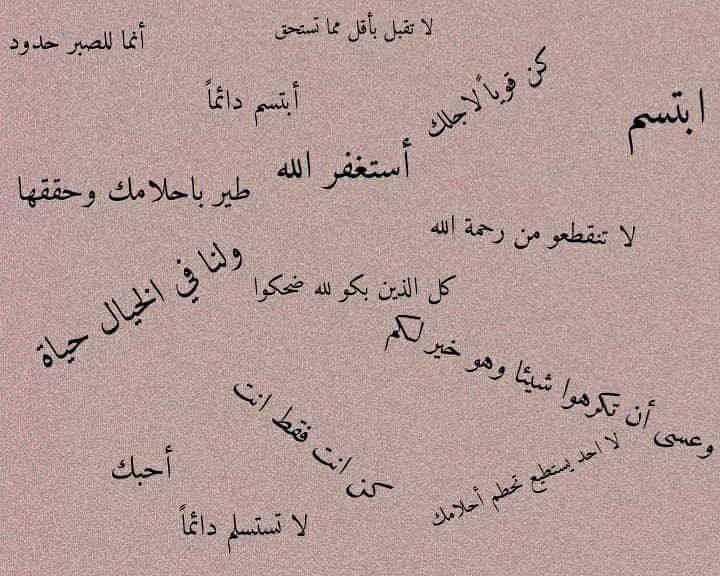 لا تقبل بأقل مما تستحق
أنما للصبر حدود
كن قوياً لاجلك
أبتسم دائماً
ابتسم
أستغفر الله
طير باحلامك وحققها
لا تنقطعو من رحمة الله
ولنا في الخيال حياة
كل الذين بكو لله ضحكوا
وعسى أن تكرهوا شيئا وهو خير لكم
كن انت فقط انت
لا احد يستطيع تحطم أحلامك
أحبك
لا تستسلم دائماً